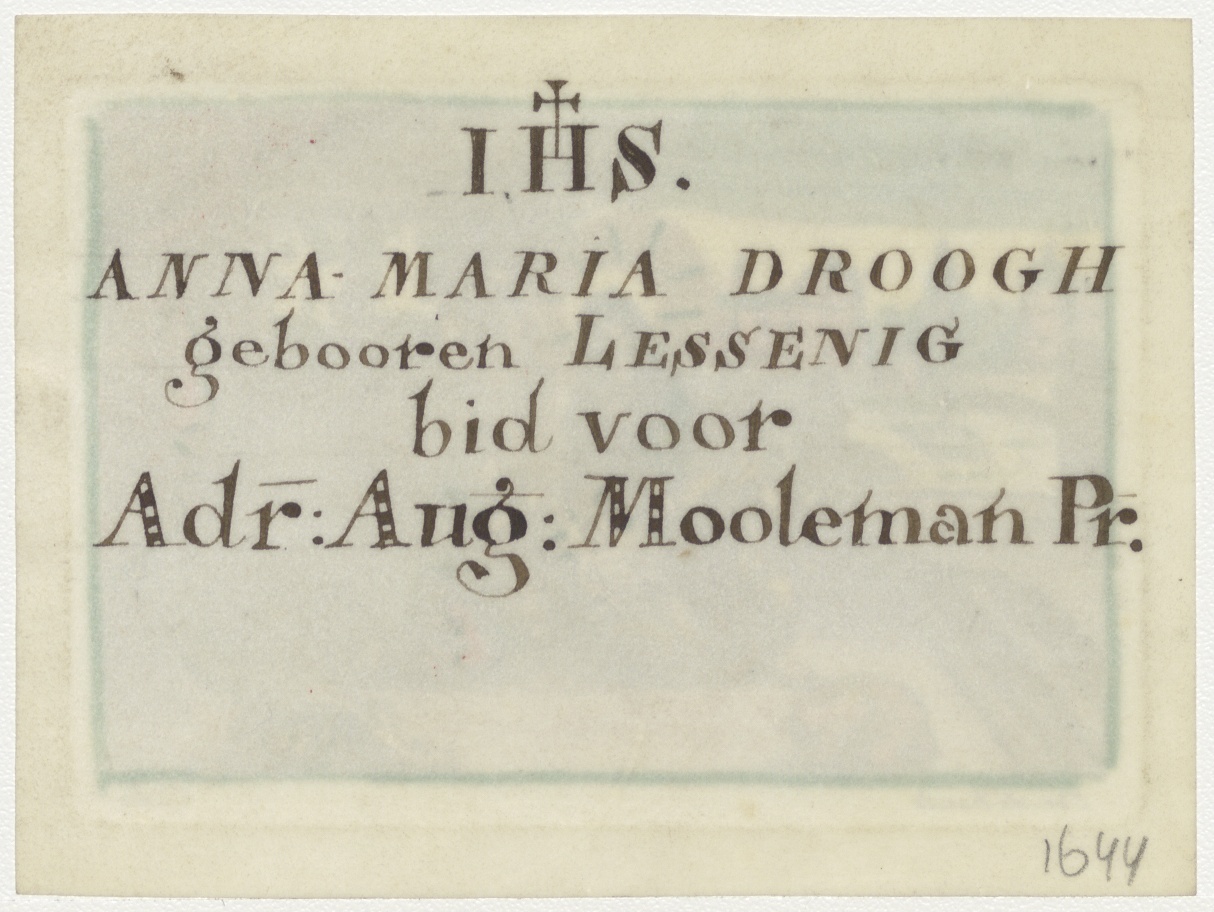 IHS.
ANNA-MARIA DROOGH
gebooren LESSENIG
bid voor
Adr̄: Auḡ: Mooleman Pr̄.
1644